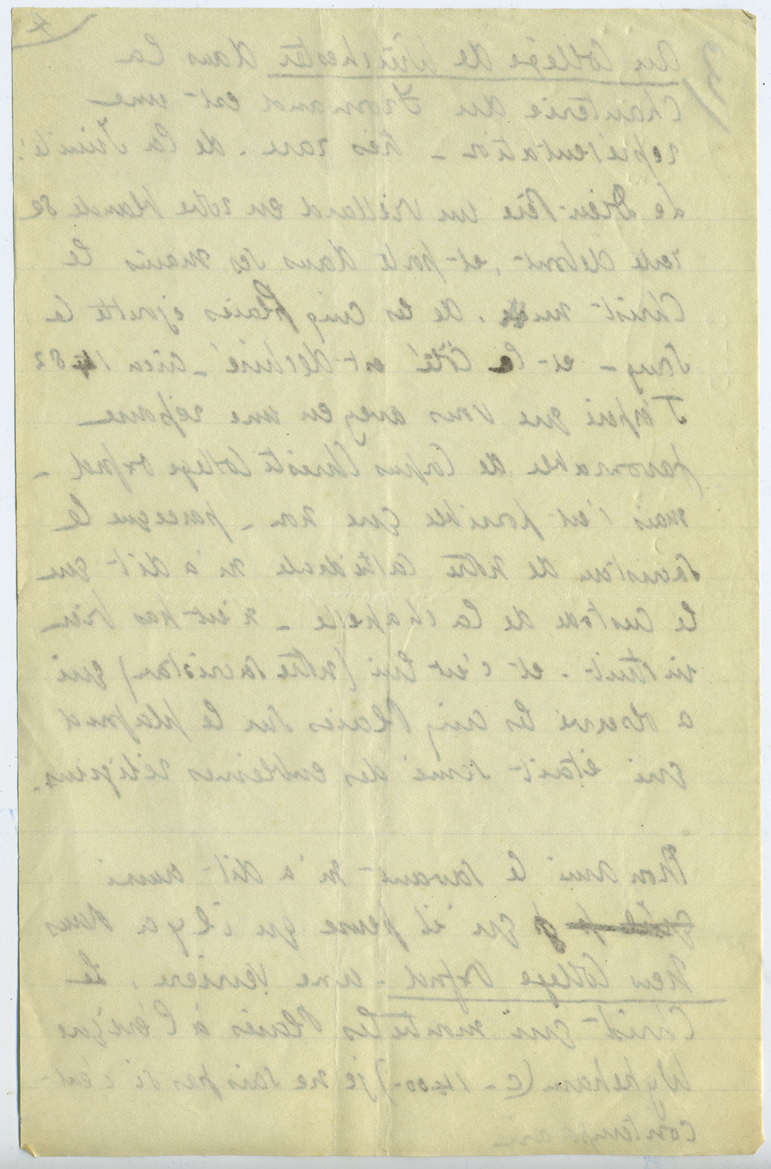 4
3)
Au College de Winchester dans la
Chanterie du Fromand est une
représentation – très rare. de la Trinité:
Le Dieu-Père un Vieillard en robe blanche se
tien debout, et porte dans ses mains le
Christ les cinq plaies ejoutte le
Sang – et le Côté est déchiré – circa 1482
J'espère que vous avez eu une réponse
favorable de Corpus Christi College Oxford –
mais c'est possible que non – parceque le
Sacristan de notre Cathédrale m'a dit que
le Custode de la chapelle – n'est pas bien
instruit. et c'est lui (notre sacristan) qui
a trouvé les cinq Plaies sur le plafond
qui était semé des emblèmes religieux.
Mon ami le savant m'a dit aussi
qu'il pense qu'il y a dans
New College Oxford. une Verrière, Le
Christ qui montre les Plaies à l'évêque
Wykeham (c – 1400 –) je ne sais pas si c'est
contemporain